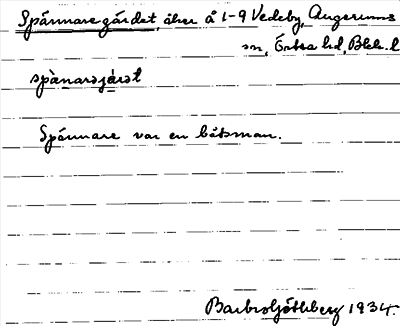 Spännaregärdet, åker å 1-9 Vedeby, Augerums
sn, Östra hd, Blek. l
spànarəjæ̀rət
Spännare var en båtsman.
Barbro Götherberg 1934.